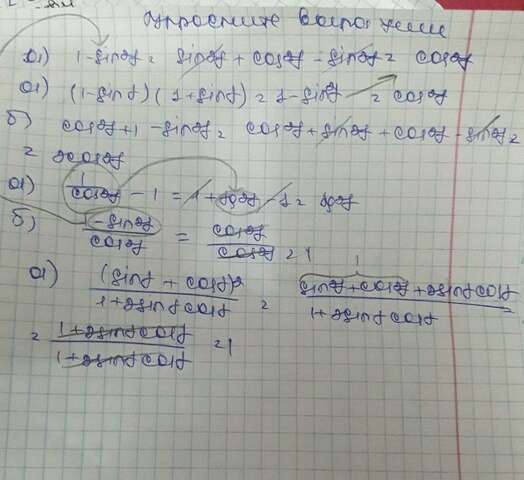 Упростите выражение
а) 1-sin²α = sin²α + cos²α - sin²α = cos²α
а) (1-sinα)(1+sinα) = 1-sin²α = cos²α
б) cos²α+1-sin²α = cos²α+sin²α+cos²α-sin²α =
= 2cos²α
а) 1/cos²α - 1 = 1+tg²α-1 = tg²α
б) 1-sin²α/cos²α = cos²α/cos²α = 1
а) (sinα + cosα)²/1+2sinαcosα = sin²α+cos²α+2sinαcosα/1+2sinαcosα =
= 1+2sinαcosα/1+2sinαcosα = 1